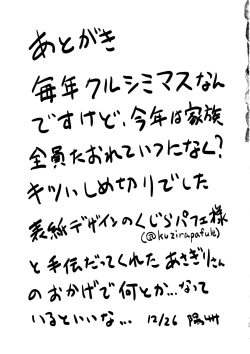 あとがき
毎年クルシミマスなん
ですけど、今年は家族
全員たおれていつになく?
キツいしめ切りでした
表紙デザインのくじらパフェ様
(@kuzirapafuk)
と手伝だってくれた あさぎりさん
のおかげで何とか…なって
いるといいな… 12/26 陽州